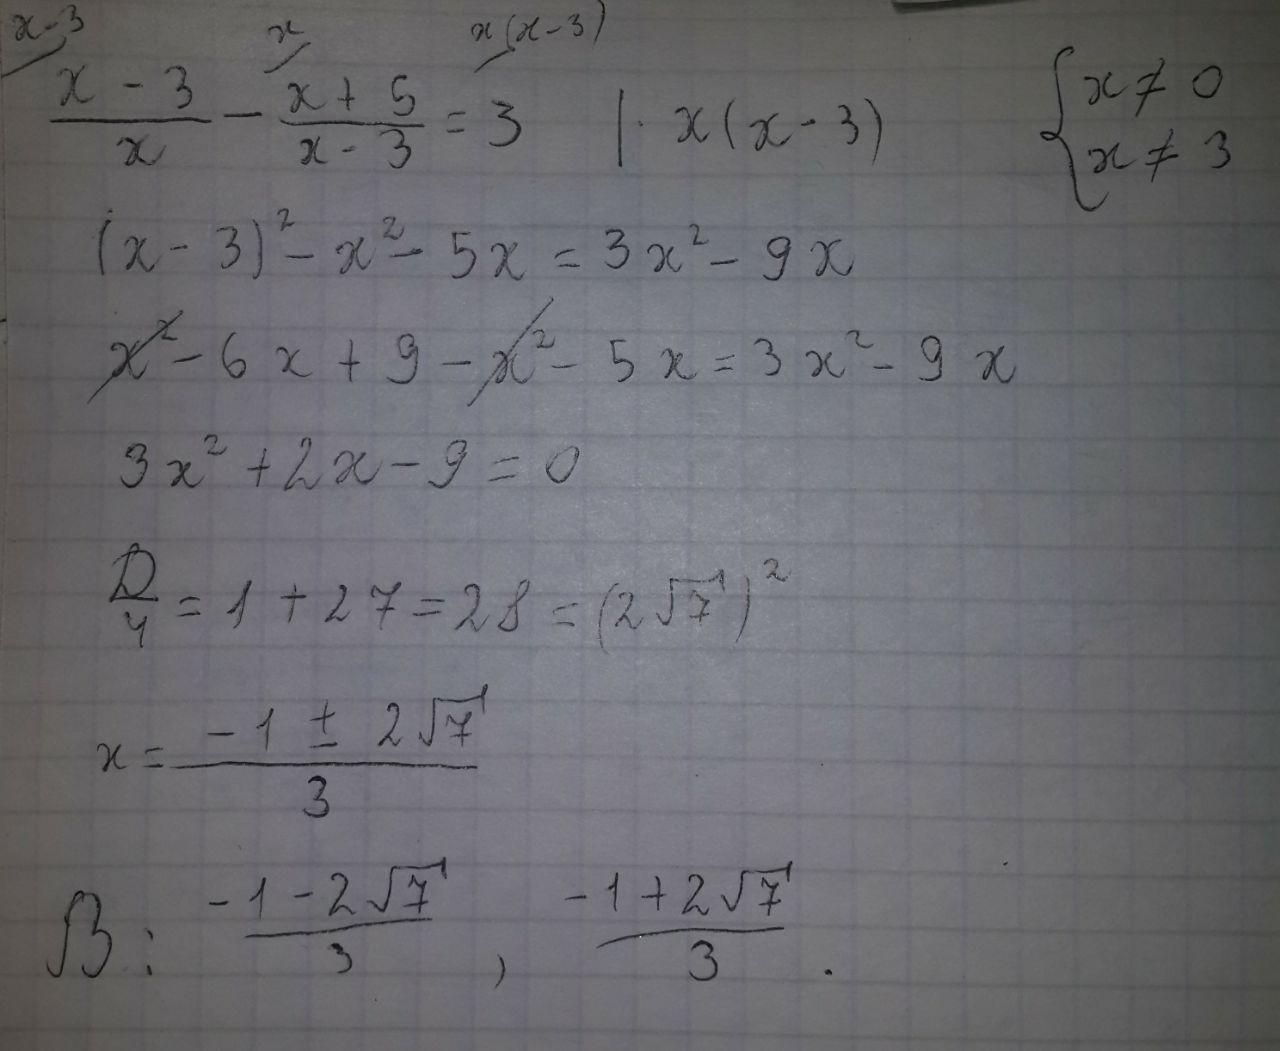 x-3 x x(x-3)
(x - 3)/x - (x + 5)/(x - 3) = 3 | · x(x - 3) { x ≠ 0
x ≠ 3
(x - 3)² - x² - 5x = 3x² - 9x
x² - 6x + 9 - x² - 5x = 3x² - 9x
3x² + 2x - 9 = 0
D/4 = 1 + 27 = 28 = (2√7)²
x = (-1 ± 2√7)/3
В: (-1 - 2√7)/3 , (-1 + 2√7)/3 .